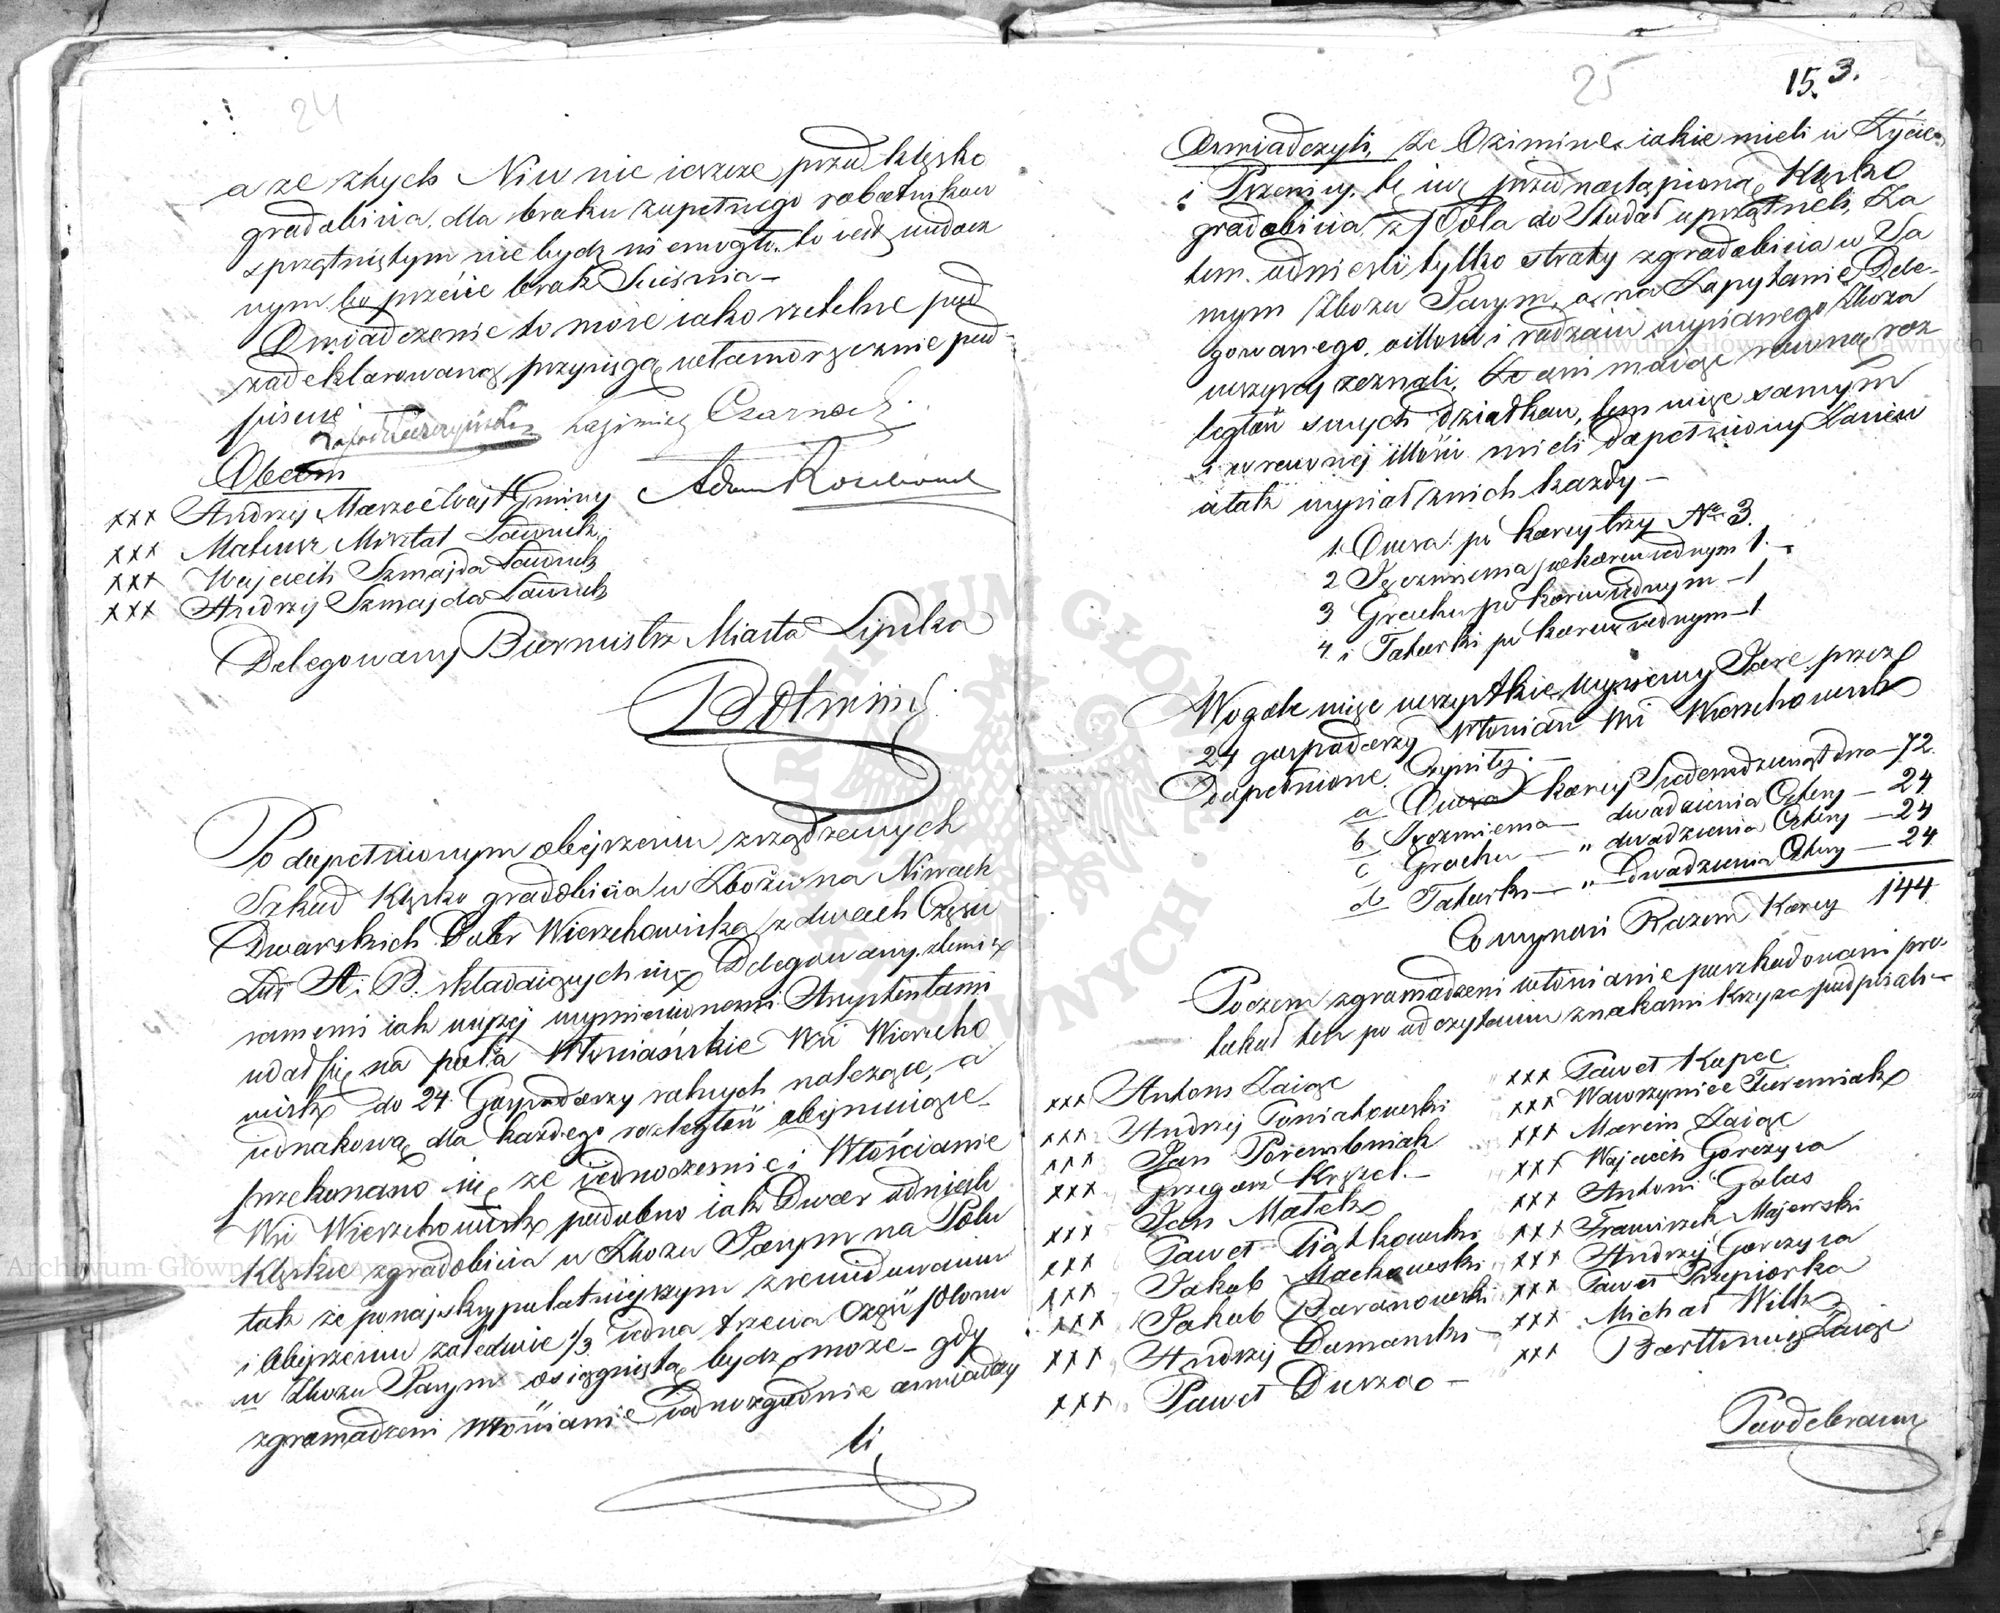 24
a ze złych Niw nie ieszcze przed klęską
gradobicia, dla braku zupełnego robotników
sprzątniętym nie bydz niemogło. to iest widocz
nym bo przecie brak Scisnia—
Oswiadczenie to może iako rzetelne pod
zadeklarowaną przysięgą własnoręcznie pod-
pisuie
Kazimierz Czarnocki
Obecni
Adam
xxx Andrzej Marzec Wójt Gminy
xxx Mateusz Misztal Ławnik
xxx Wojciech Szmajda Ławnik
xxx Andrzej Szmajda Ławnik
Delegowany Burmistrz Miasta Lipska
Po dopełnionym obejrzeniu zrządzonych
Szkód klęską gradobicia w Zbożu na Niwach
Dworskich Dóbr Wierzchowiska z dwóch Części
Lit: A. B. składaiących się Delegowany z temiż
samemi iak wyżej wymienionemi Assystentami
udał się na pola Włosciańskie Wsi Wierzcho
wisk do 24 Gospodarzy rolnych należące, a
iednakową dla każdego rozległość obejmuiące
przekonano się, że iednocześnie i Włościanie
Wsi Wierzchowisk podobno iak Dwór odnieśli
Klęskie zgradobicia w Zbożu Jarym na Polu
tak że ponajskrypulatniejszym zrewidowaniu
i Obejrzeniu zaledwie 1/3 iedna trzecia Część plonu
w Zbożu Jarym osiągnięta bydz może— gdy
zgromadzeni Włościanie iednozgodnie oswiadczy
li,
25
15. 3.
Oswiadczyli, że Oziminę iakie mieli w Życie
i Pszenicy, tę iuż przed nastąpioną Klęską
gradobicia z Pola do Stodół uprzątneli, Za
tem odnieśli tylko straty zgradobicia w Sa
mym Zbożu Jarym, a na Zapytanie Dele-
gowanego, o illości i rodzaiu wysianego Zboża
wszyscy zeznali, Że oni maiąc równą roz
ległość swych działków, tem więc samym
i w równej illości mieli dopełniony Zasiew
a tak wysiał z nich każdy—
1. Owsa po korcy trzy No 3.
2 Jęczmienia po korcu iednym 1.
3 Grochu po korcu iednym — 1
4 i Tatarki po korcu iednym — 1
Wogóle więc wszystkie wysiewy Jare przez
24 gospodarzy Włościan Wsi Wierzchowisk
dopełnione czynią.—
a Owsa korcy Siedemdziesiąt dwa — 72.
b Jęczmienia — dwadzieścia Cztery — 24
c Grochu — „ dwadzieścia Cztery — 24
d Tatarki — „ Dwadzieścia Cztery — 24
Co wynosi Razem Korcy 144
Poczem zgromadzeni włościanie poszkodowani pro-
tokuł ten po odczytaniu znakami Krzyża podpisali—
xxx Antoni Zając
xxx Andrzej Poniatowski
xxx Jan Porembniak
xxx Grzegorz Kryzel.—
xxx Jan Małek
xxx Paweł Piątkowski
xxx Jakób Maćkowski
xxx Jakób Baranowski
xxx Andrzej Domański—
xxx Paweł Durząo—
xxx Paweł Kapec
xxx Wawrzyniec Jeremiak
xxx Marcin Zając
xxx Wojciech Gorczyca
xxx Antoni Galas
xxx Franciszek Majewski
xxx Andrzej Gorczyca
xxx Paweł Przepiorka
xxx Michał Wilk
xxx Bartłomiej Zając
Archiwum Główne Akt Dawnych
Archiwum Główne Akt Dawnych
ARCHIWUM GŁÓWNE AKT DAWNYCH